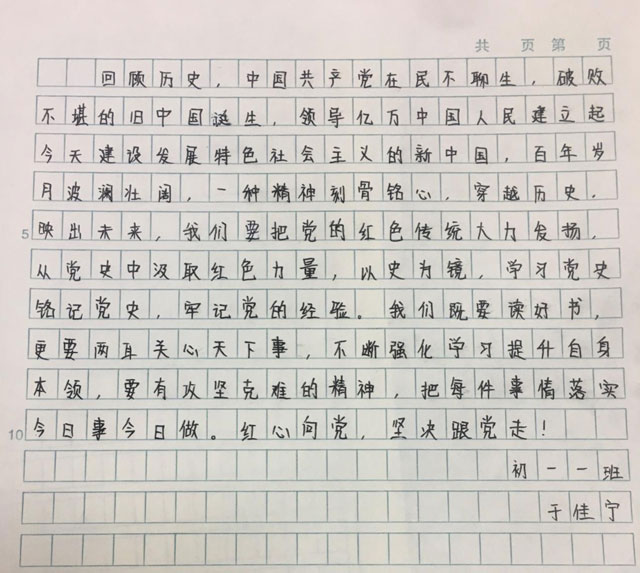 共 页 第 页
回顾历史，中国共产党在民不聊生，破败
不堪的旧中国诞生，领导亿万中国人民建立起
今天建设发展特色社会主义的新中国，百年岁
月波澜壮阔，一种精神刻骨铭心，穿越历史，
5 映出未来，我们要把党的红色传统大力发扬，
从党史中汲取红色力量，以史为镜，学习党史
铭记党史，牢记党的经验。我们既要读好书，
更要两耳关心天下事，不断强化学习提升自身
本领，要有攻坚克难的精神，把每件事情落实
10 今日事今日做。红心向党，坚决跟党走！
初一一班
于佳宁